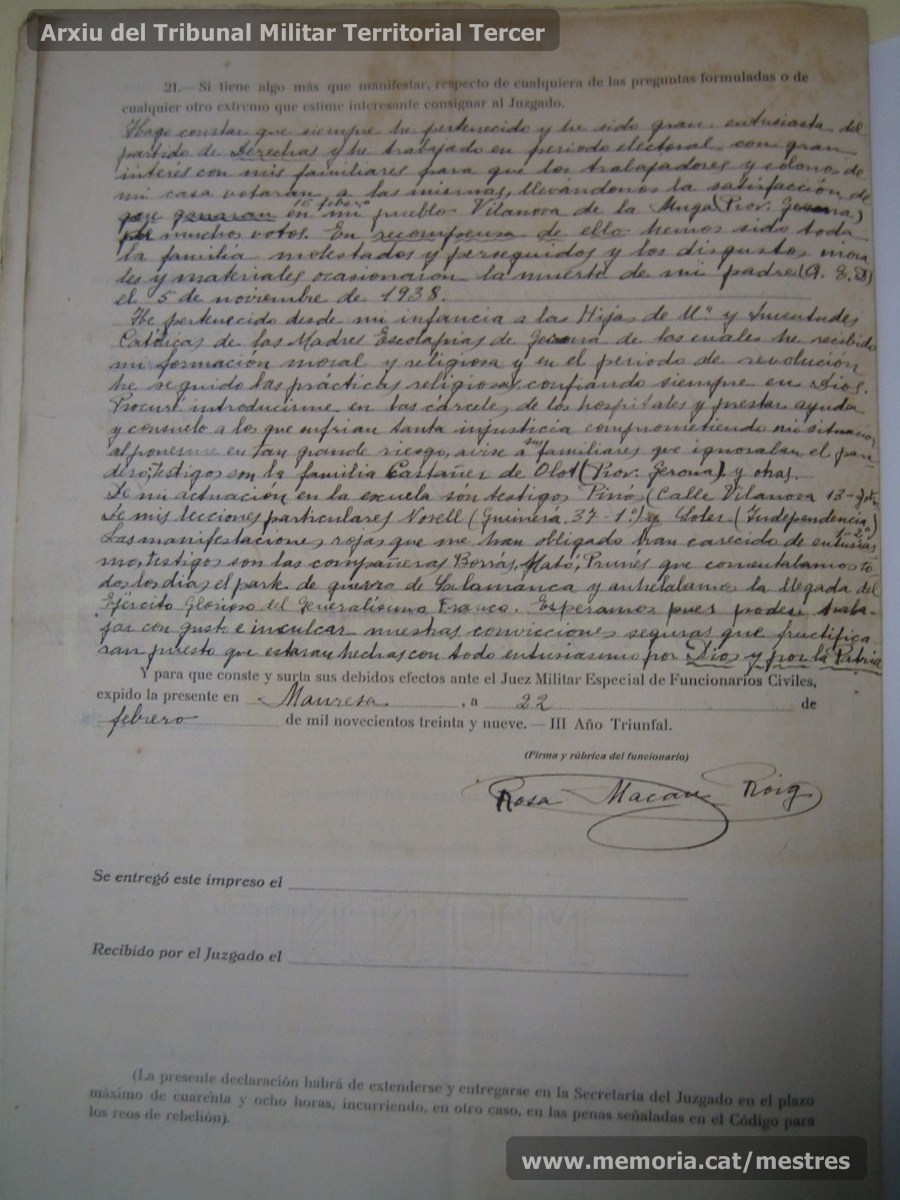 Arxiu del Tribunal Militar Territorial Tercer
21.—Si tiene algo más que manifestar, respecto de cualquiera de las preguntas formuladas o de
cualquier otro extremo que estime interesante consignar al Juzgado.
Hago constar que siempre he pertenecido y he sido gran entusiasta del
partido de Derechas y he trabajado en periodo electoral con gran
interés con mis familiares para que los trabajadores y colonos de
mi casa votaran a las mismas, llevándonos la satisfacción de
que ganaran en 16 febrero mi pueblo Vilanova de la Muga (Prov. Gerona)
por muchos votos. En recompensa de ello hemos sido toda
la familia molestados y perseguidos y los disgustos mora-
les y materiales ocasionaron la muerte de mi padre (q. e. D)
el 5 de noviembre de 1938.
He pertenecido desde mi infancia a las Hijas de Mª y Juventudes
Católicas de las Madres Escolapias de Gerona de las cuales he recibido
mi formación moral y religiosa y en el periodo de revolución
he seguido las prácticas religiosas, confiando siempre en Dios.
Procuré introducirme en las cárceles, de los hospitales y prestar ayuda
y consuelo a los que sufrian tanta injusticia comprometiendo mi situación
al ponerme en tan grande riesgo, avise a sus familiares que ignoraban el para-
dero; testigos son la familia Castañer de Olot (Prov. Gerona) y otras.—
De mi actuación en la escuela son testigos Pinó (Calle Vilanova 13-
De mis lecciones particulares Novell (Guimerá. 37-1º) y Soler (Independencia,
1-2º)
Las manifestaciones rojas que me han obligado han carecido de entusias-
mo, testigos son las compañeras Borrás, Mató, Prunés que comentabamos to-
dos los dias el parte de guerra de Salamanca y anhelabamos la llegada del
Ejército Glorioso del Generalisimo Franco. Esperamos pues poder traba-
jar con gusto e inculcar nuestras convicciones seguras que fructifica-
ran puesto que estaran hechas con todo entusiasmo por Dios y por la Patria
Y para que conste y surta sus debidos efectos ante el Juez Militar Especial de Funcionarios Civiles,
expido la presente en Manresa, a 22 de
febrero de mil novecientos treinta y nueve.—III Año Triunfal.
(Firma y rúbrica del funcionario)
Rosa Macau Roig
Se entregó este impreso el
Recibido por el Juzgado el
(La presente declaración habrá de extenderse y entregarse en la Secretaría del Juzgado en el plazo
máximo de cuarenta y ocho horas, incurriendo, en otro caso, en las penas señaladas en el Código para
los reos de rebelión).
www.memoria.cat/mestres